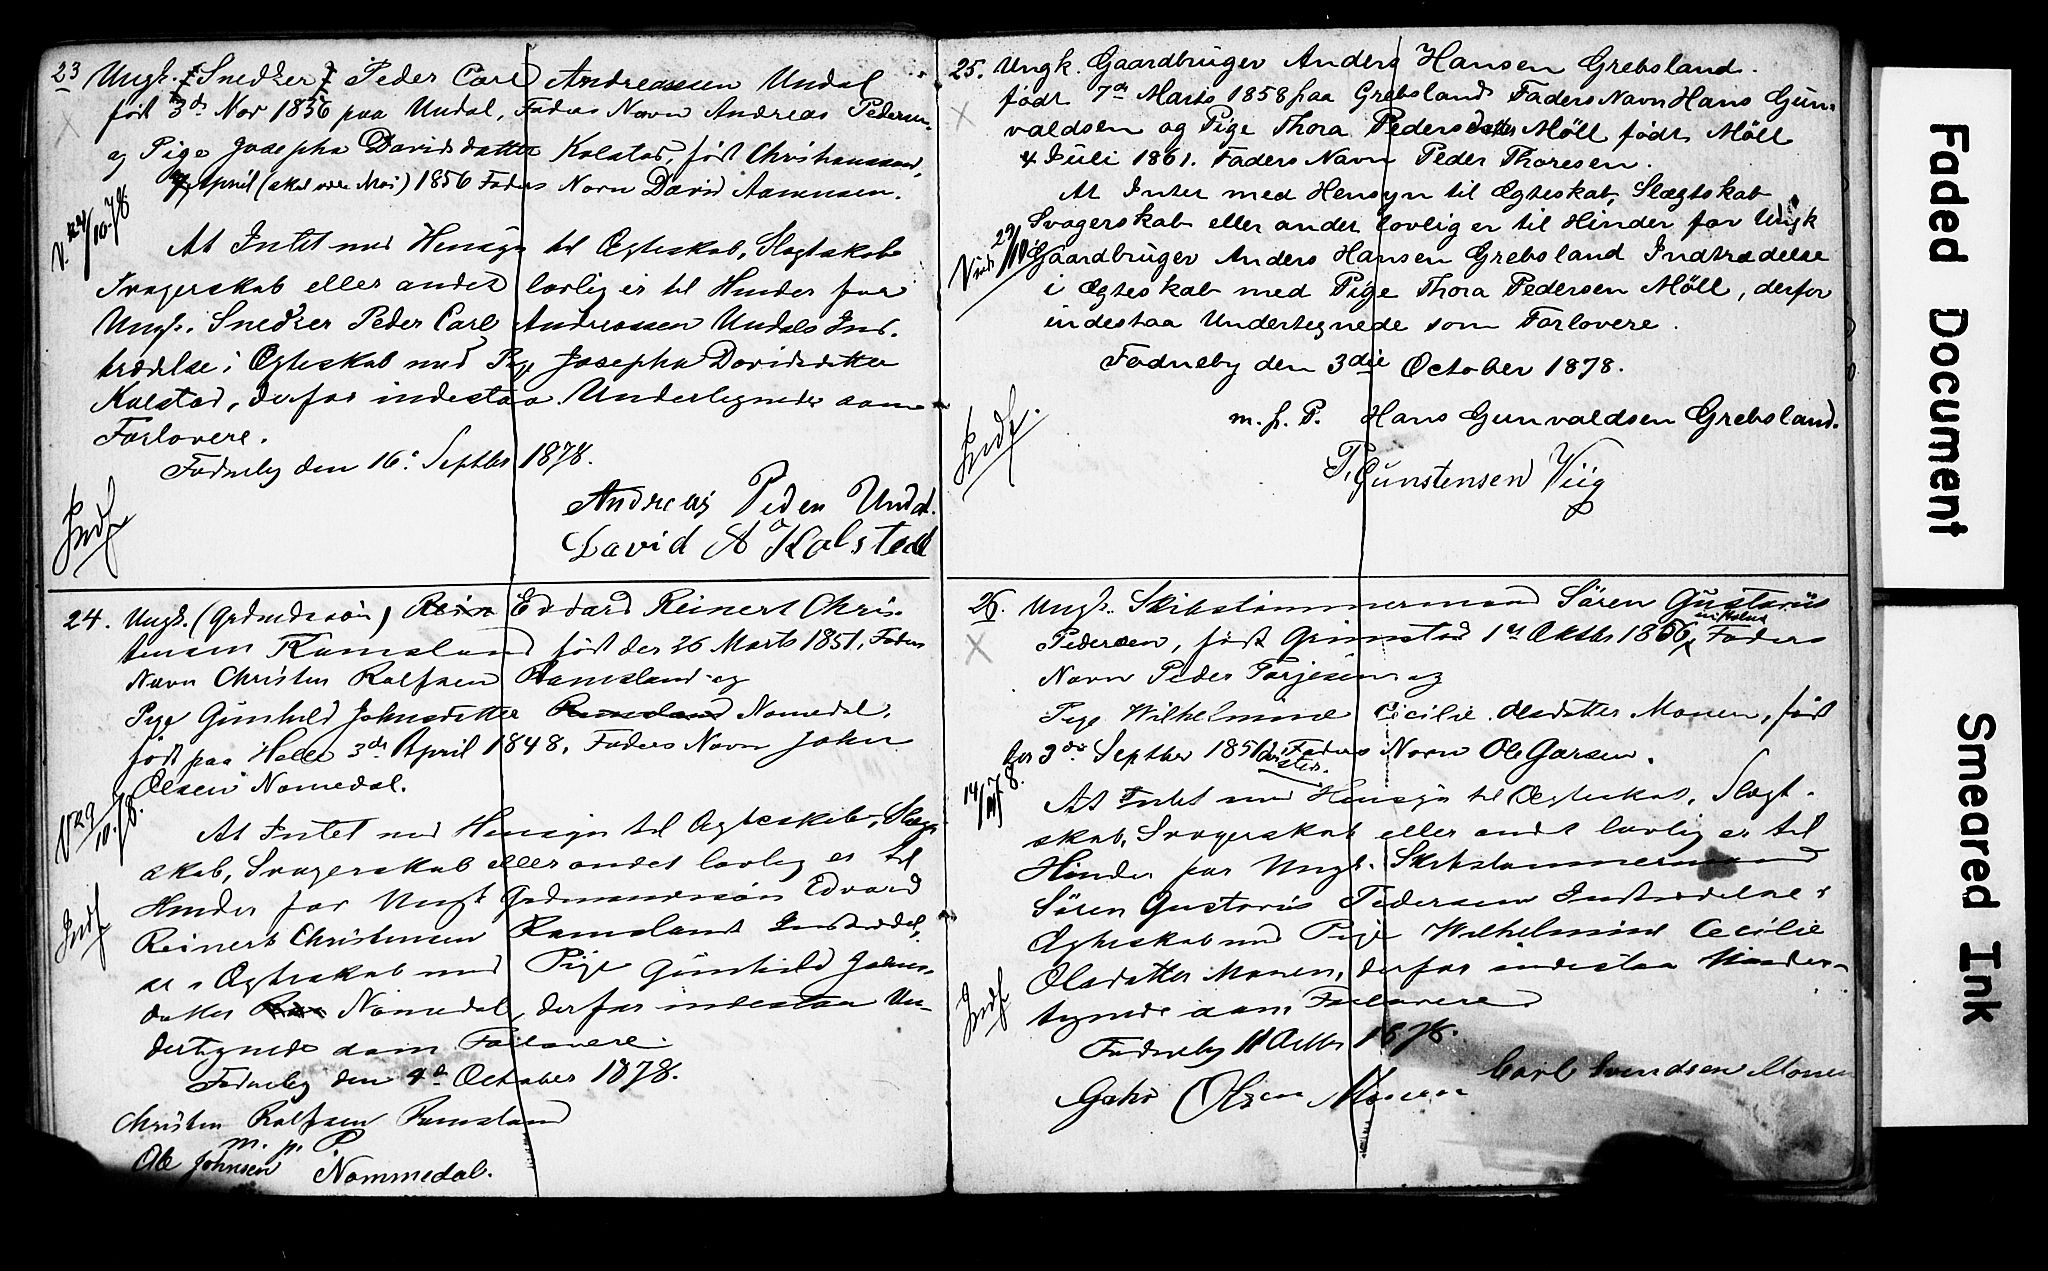 23 Ungk. Snedker Peder Carl Andreassen Undal
født 3de Nov 1856 paa Undal, Faders Navn Andreas Pedersen
og Pige Josepha Davidsdatter Kalstad, født Christianssand,
April (skal være Mai) 1856 Faders Navn David Aamunsen.
V. 24/10-78
At Intet med Hensyn til Ægteskab, Slægtskab
Svogerskab eller andet lovlig er til Hinder for
Ungk. Snedker Peder Carl Andreassen Undals Ind-
trædelse i Ægteskab med Pige Josepha Davidsdatter
Kalstad, derfor indestaa Undertegnede som
Forlovere.
Fodneby den 16. Septbr 1878.
Indf
Andreas Peden Undal.
David A Kalstad
24. Ungk. (Grdmdssøn) Edvard Reinert Chris-
tensen Ramsland født den 26 Marts 1851, Faders
Navn Christen Rolfsen Ramsland og
Pige Gunhild Johnsdatter Ramsland Nomedal,
født paa Helle 3de April 1848, Faders Navn John
Olsen Nomedal.
V 29/10-78.
At Intet med Hensyn til Ægteskab, Slægt
skab, Svogerskab eller andet lovlig er til
Hinder for Ungk Grdmandssøn Edvard
Reinert Christensen Ramsland Indtrædel-
se i Ægteskab med Pige Gunhild Johns-
datter Nomedal, derfor indestaa Un-
dertegnede som Forlovere.
Fodneby den 4de October 1878.
Indf
Christen Rolfsen Ramsland
m. p. P.
Ole Johnsen Nommedal.
25. Ungk. Gaardbruger Anders Hansen Grebsland.
født 7de Marts 1858 paa Grebsland Faders Navn Hans Gun-
valdsen og Pige Thora Pedersdatter Möll født Möll
4 Juli 1861. Faders Navn Peder Thoresen.
At Intet med Hensyn til Ægteskab, Slægtskab
Svogerskab eller andet lovlig er til Hinder for Ungk
Gaardbruger Anders Hansen Grebsland Indtrædelse
i Ægteskab med Pige Thora Pedersen Möll, derfor
indestaa Undertegnede som Forlovere.
Fodneby den 3die October 1878.
Indf.
m. p. P. Hans Gunvaldsen Grebsland.
T. Gunstensen Viig
26. Ungk. Skibstømmermand Søren Gustavus
Pedersen, født Grimstad 1ste Oktbr 1856, Faders
Navn Peder Torjesen og
Pige Wilhelmine Cecilie Olsdatter Monen, født
3de Septber 1851 Faders Navn Ole Garsen.
At Intet med Hensyn til Ægteskab, Slægt-
skab, Svogerskab eller andet lovlig er til
Hinder for Ungk. Skibstømmermand
Søren Gustavus Pedersen Indtrædelse i
Ægteskab med Pige Wilhelmine Cecilie
Olsdatter Monen, derfor indestaa Under-
tegnede som Forlovere
Fodneby 11 Octbr 1878.
Indf
Carl Svendsen Monen
Olsen Monen
Faded Document
Smeared Ink